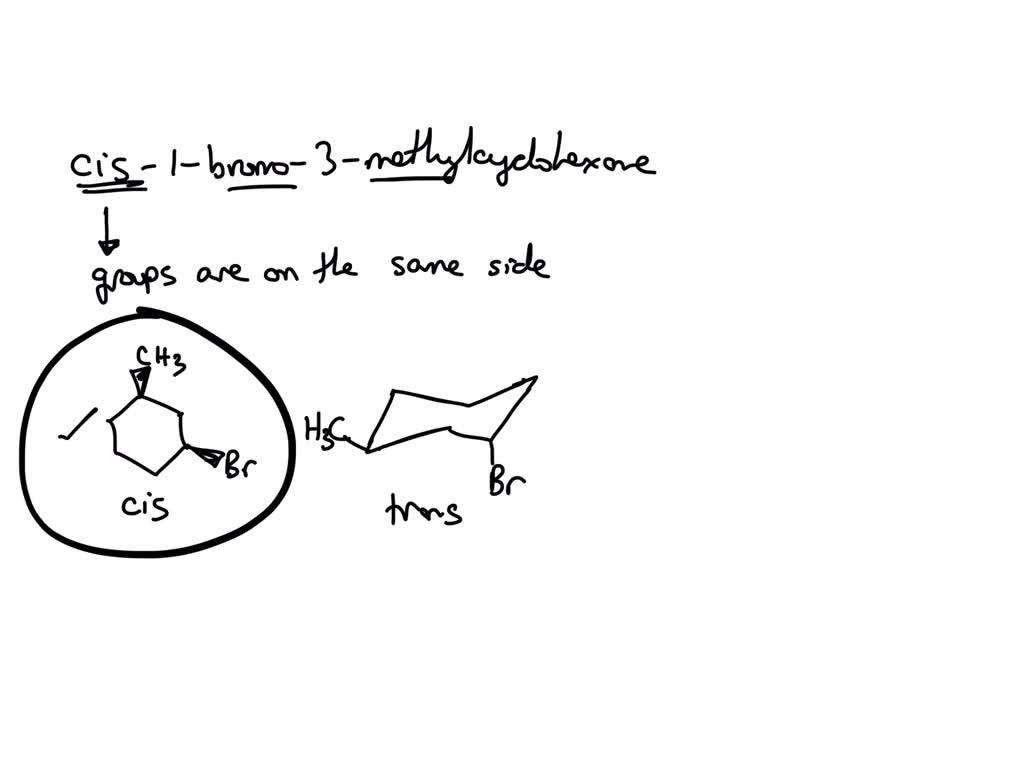 cis-1-bromo-3-methylcyclohexane
groups are on the same side
CH3
Br
cis
H3C
Br
trans